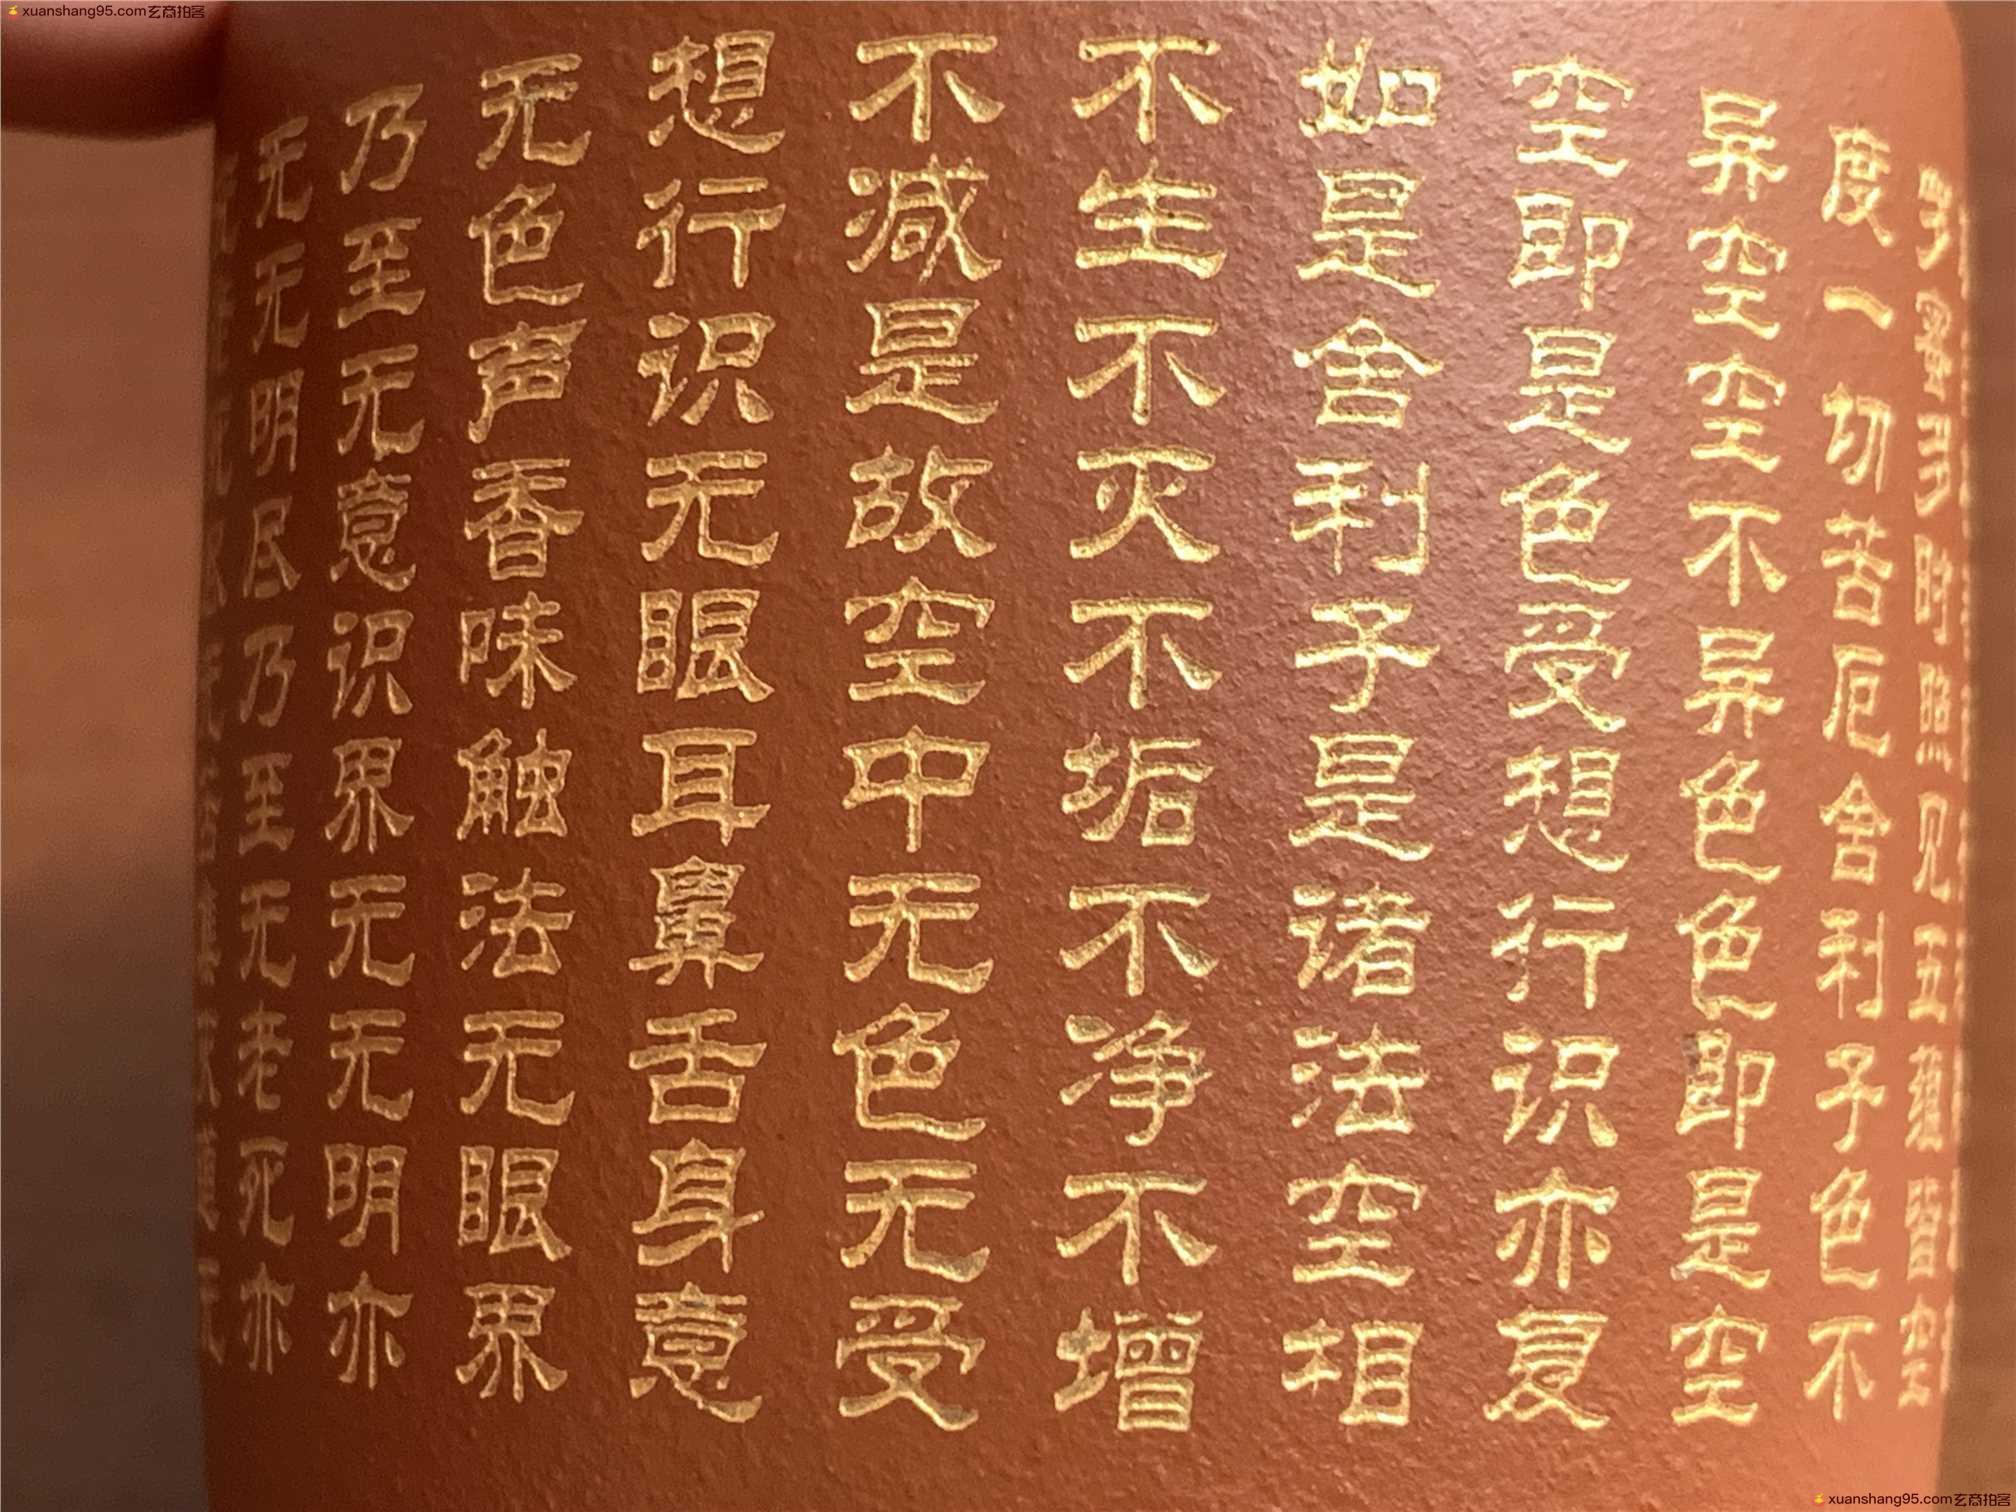 xuanshang95.com玄商拍客
蜜多时照见五蕴皆空
度一切苦厄舍利子色不
异空空不异色色即是空
空即是色受想行识亦复
如是舍利子是诸法空相
不生不灭不垢不净不增
不减是故空中无色无受
想行识无眼耳鼻舌身意
无色声香味触法无眼界
乃至无意识界无无明亦
无无明尽乃至无老死亦
xuanshang95.com玄商拍客